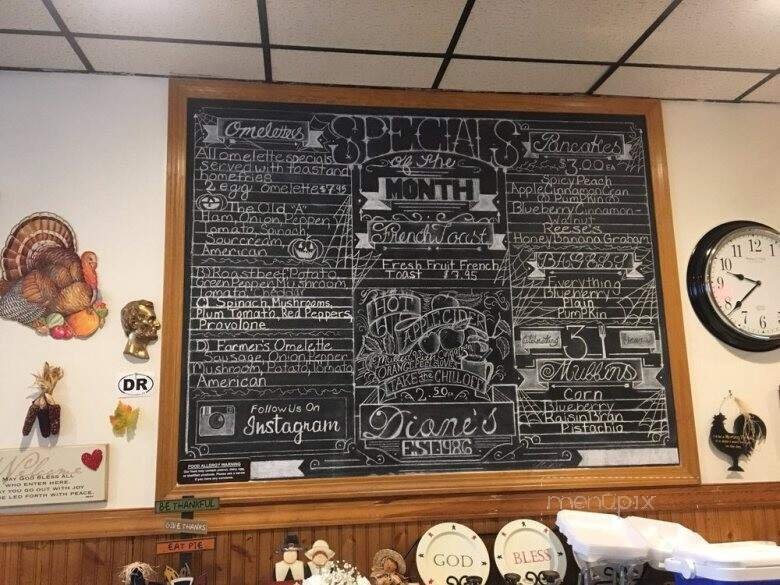 Omelettes
All omelette specials
served with toast and
homefries
2 egg omelette $7.95
A) The Old "A"
Ham, Onion, Pepper,
Tomato, Spinach,
Sour cream,
American
B) Roast beef, Potato,
Green Pepper, Mushroom,
C) Spinach, Mushrooms,
Plum Tomato, Red Peppers,
Provolone
D) Farmer's Omelette
Sausage, Onion, Pepper
Mushroom, Potato, Tomato
American
Follow Us On
Instagram
FOOD ALLERGY WARNING
SPECIALS
of the
MONTH
French Toast
Fresh Fruit French
Toast 7.95
HOT
APPLE CIDER
ORANGE PEEL
TAKE THE CHILL OFF
2.50
Diane's
EST. 1986
Pancakes
$3.00 EA
Spicy Peach
Apple Cinnamon Cran
Pumpkin
Blueberry Cinnamon-
Walnut
Reese's
Honey Banana Graham
BAGELS
Everything
Blueberry
Plain
Pumpkin
Celebrating
31
Years
Muffins
Corn
Blueberry
Raisin Bran
Pistachio
DR
Welcome
MAY GOD BLESS ALL
WHO ENTER HERE.
MAY YOU GO OUT WITH JOY
BE LED FORTH WITH PEACE.
BE THANKFUL
GIVE THANKS
EAT PIE
GOD
BLESS
10 11 12 1
9
8 7 6
menupix